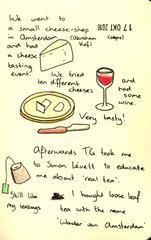 We went to
a small cheese-shop
17 OKT 2010
in Amsterdam
and had
a cheese
tasting
event.
We tried
ten different
cheeses
and had
some
wine.
Very tasty!
Afterwards TG took me
to Simon Lévelt to educate
me about 'real tea'.
Still like
my teabags
I bought loose leaf
tea with the name
'Wonder van Amsterdam'